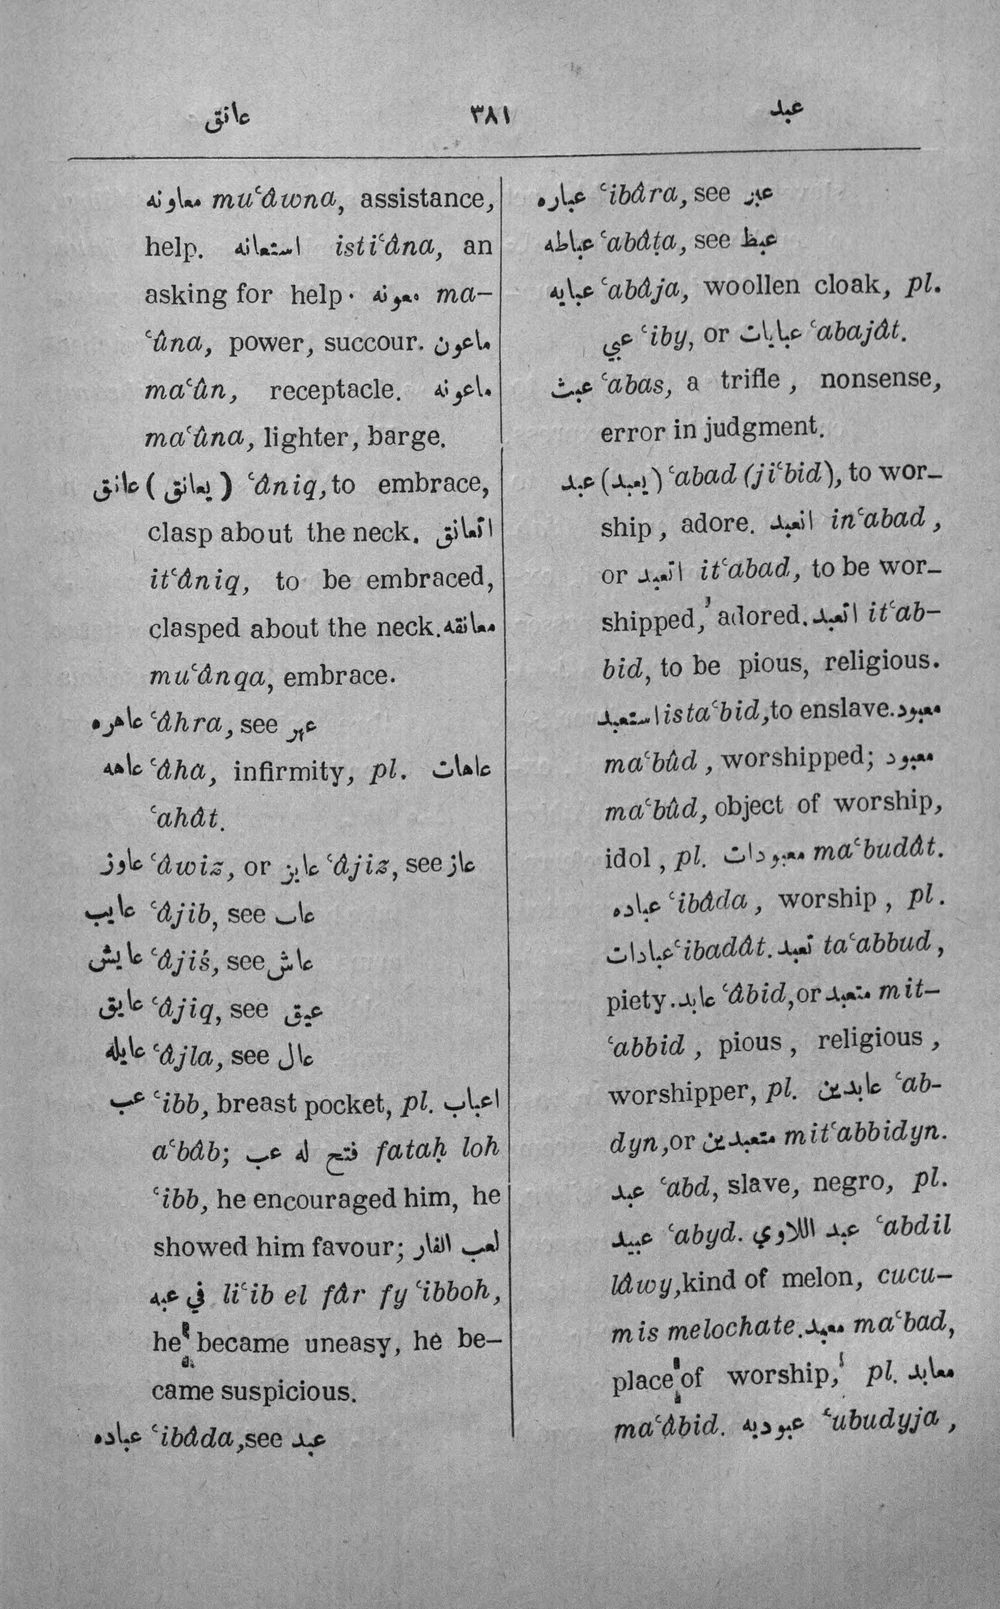 عانق ٣٨١ عبد
معاونه mu‘âwna, assistance,
help. استعانه isti‘âna, an
asking for help · معونه ma-
‘ûna, power, succour. ماعون
ma‘ûn, receptacle. ماعونه
ma‘ûna, lighter, barge.
عانق (يعانق) ‘âniq, to embrace,
clasp about the neck. اتعانق
it‘âniq, to be embraced,
clasped about the neck. معانقه
mu‘ânqa, embrace.
عاهره ‘âhra, see عهر
عاهه ‘âha, infirmity, pl. عاهات
‘ahât.
عاوز ‘âwiz, or عايز ‘âjiz, see عاز
عايب ‘âjib, see عاب
عايش ‘âjiś, see عاش
عايق ‘âjiq, see عيق
عايله ‘âjla, see عال
عب ‘ibb, breast pocket, pl. اعباب
a‘bâb; فتح له عب fataḥ loh
‘ibb, he encouraged him, he
showed him favour; لعب الفار
في عبه li‘ib el fâr fy ‘ibboh,
he became uneasy, he be-
came suspicious.
عباده ‘ibâda, see عبد
عباره ‘ibâra, see عبر
عباطه ‘abâṭa, see عبط
عبايه ‘abâja, woollen cloak, pl.
عبي ‘iby, or عبايات ‘abajât.
عبث ‘abas, a trifle, nonsense,
error in judgment.
عبد (يعبد) ‘abad (ji‘bid), to wor-
ship, adore. انعبد in‘abad,
or اتعبد it‘abad, to be wor-
shipped, adored. اتعبد it‘ab-
bid, to be pious, religious.
استعبد ista‘bid, to enslave. معبود
ma‘bûd, worshipped; معبود
ma‘bûd, object of worship,
idol, pl. معبودات ma‘buddât.
عباده ‘ibâda, worship, pl.
عبادات ‘ibadât. تعبد ta‘abbud,
piety. عابد ‘âbid, or متعبد mit-
‘abbid, pious, religious,
worshipper, pl. عابدين ‘ab-
dyn, or متعبدين mit‘abbidyn.
عبد ‘abd, slave, negro, pl.
عبيد ‘abyd. عبد اللاوي ‘abdil
lâwy, kind of melon, cucu-
mis melochate. معبد ma‘bad,
place of worship, pl. معابد
ma‘âbid. عبوديه ‘ubudyja,